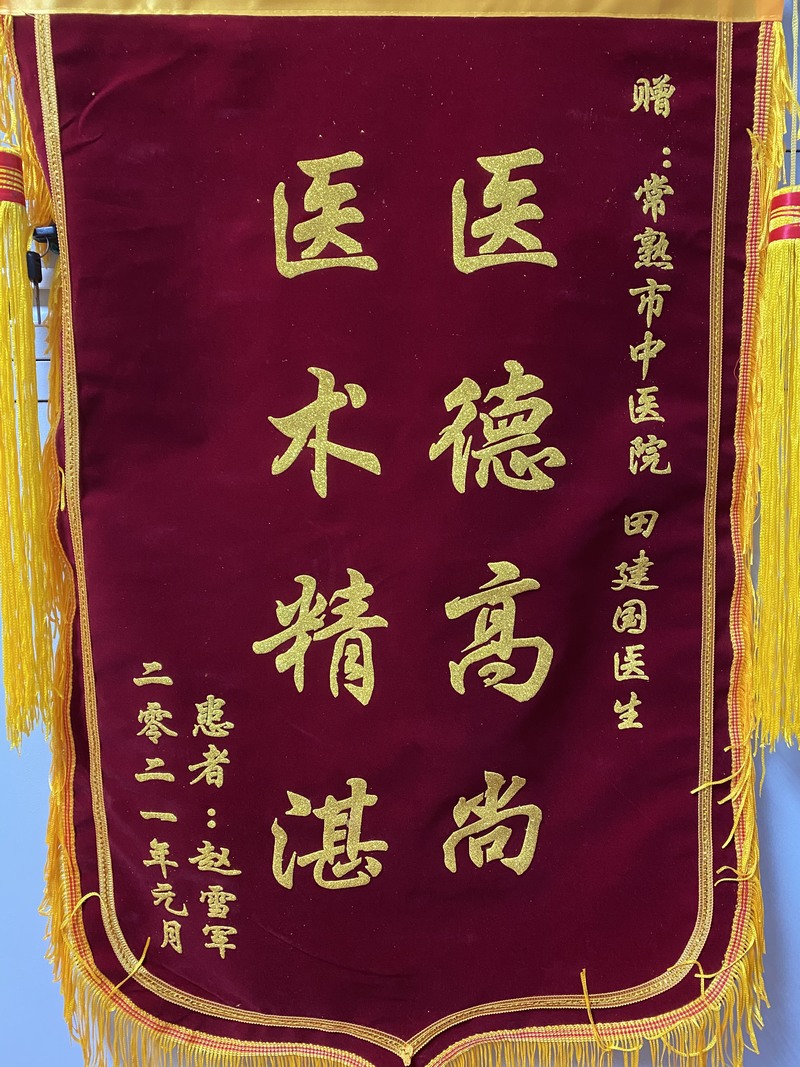 赠：常熟市中医院 田建国医生
医德高尚
医术精湛
患者：赵雪军
二零二一年元月